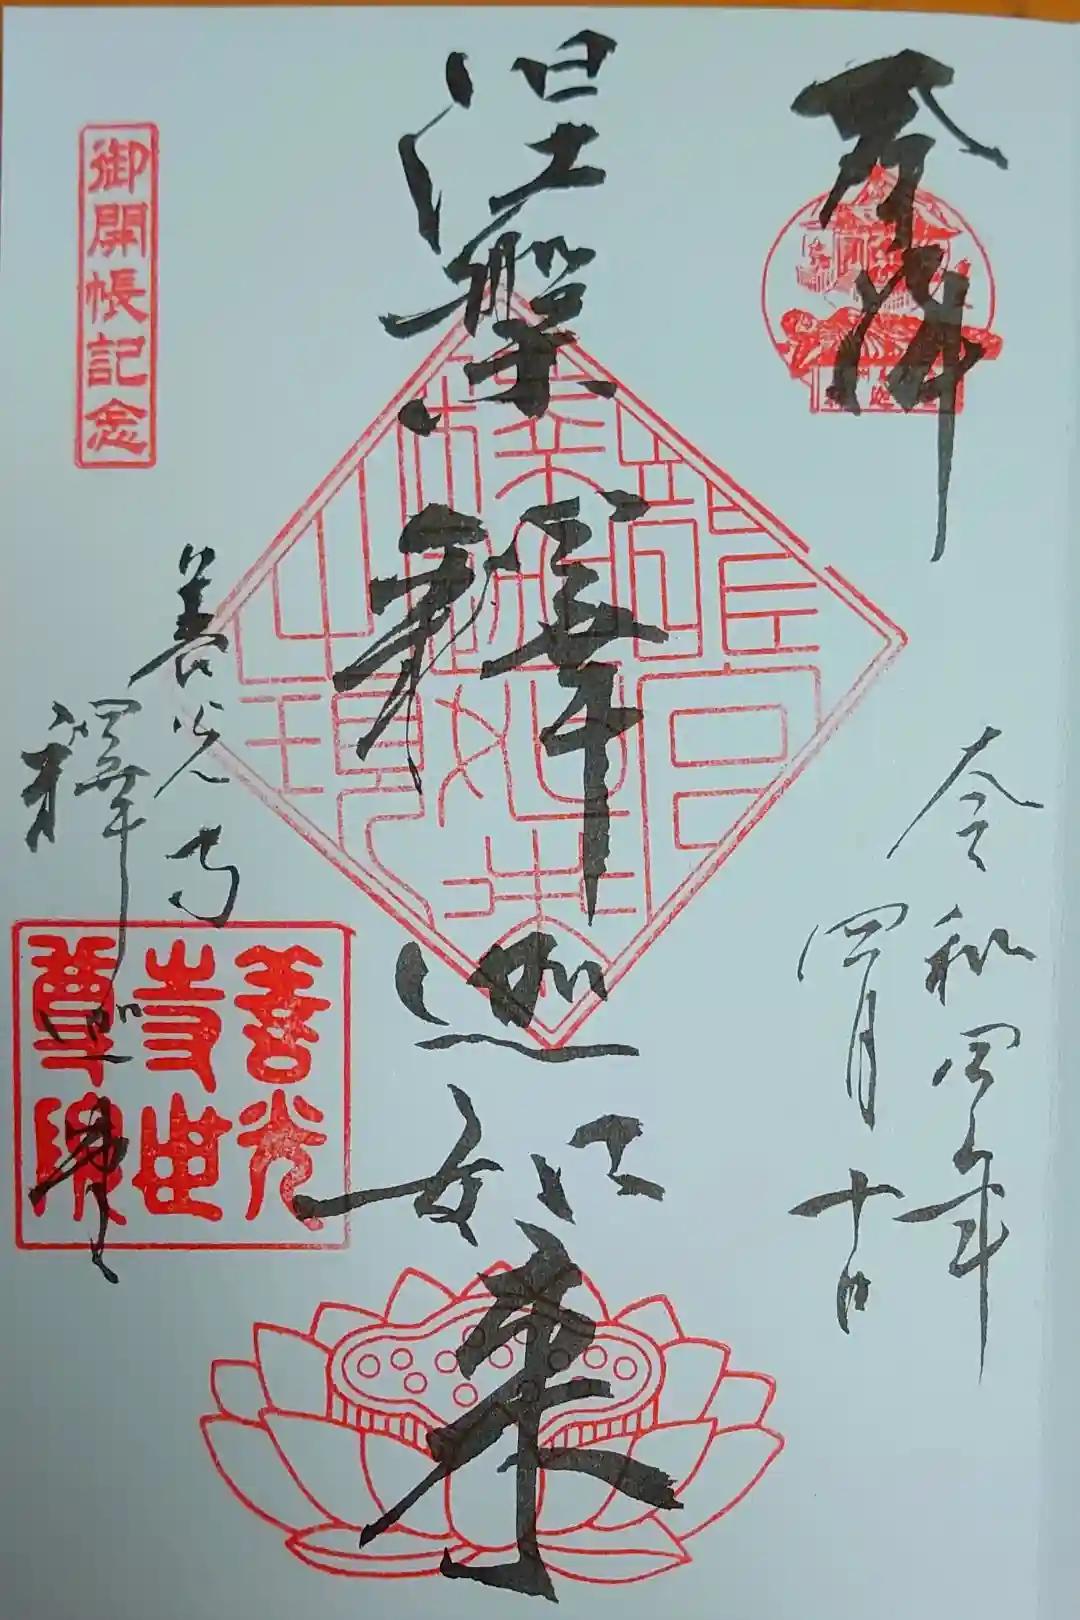 奉拝
令和四年
四月十日
涅槃
釋迦如来
御開帳記念
善光寺
釋迦堂
善光
寺世
尊院